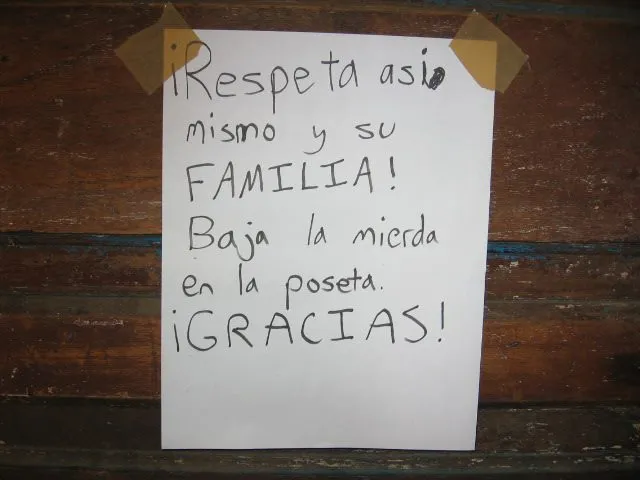 ¡Respeta asi
mismo y su
FAMILIA!
Baja la mierda
en la poseta.
¡GRACIAS!